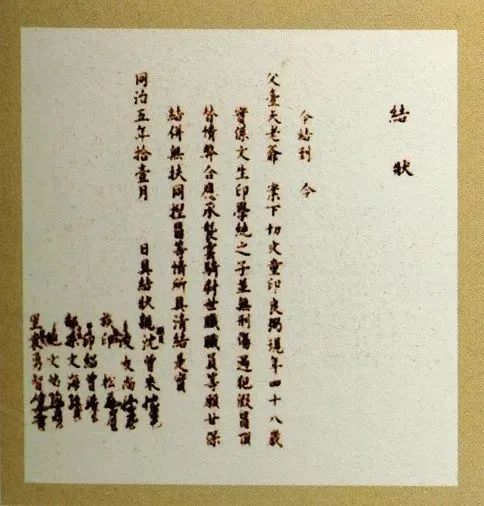 結狀
今結到 今
父臺天老爺 案下切文童印良弼現年四十八歲
實係文生印學純之子並無刑傷過犯假冒頂
替情弊合應承襲雲騎尉世職職員等願甘保
結併無扶同捏冒等情所具清結是實
同治五年拾壹月 日具結狀親沈曾來
文尚
族印松
印紹曾
鄰 文海
文
里 勇智